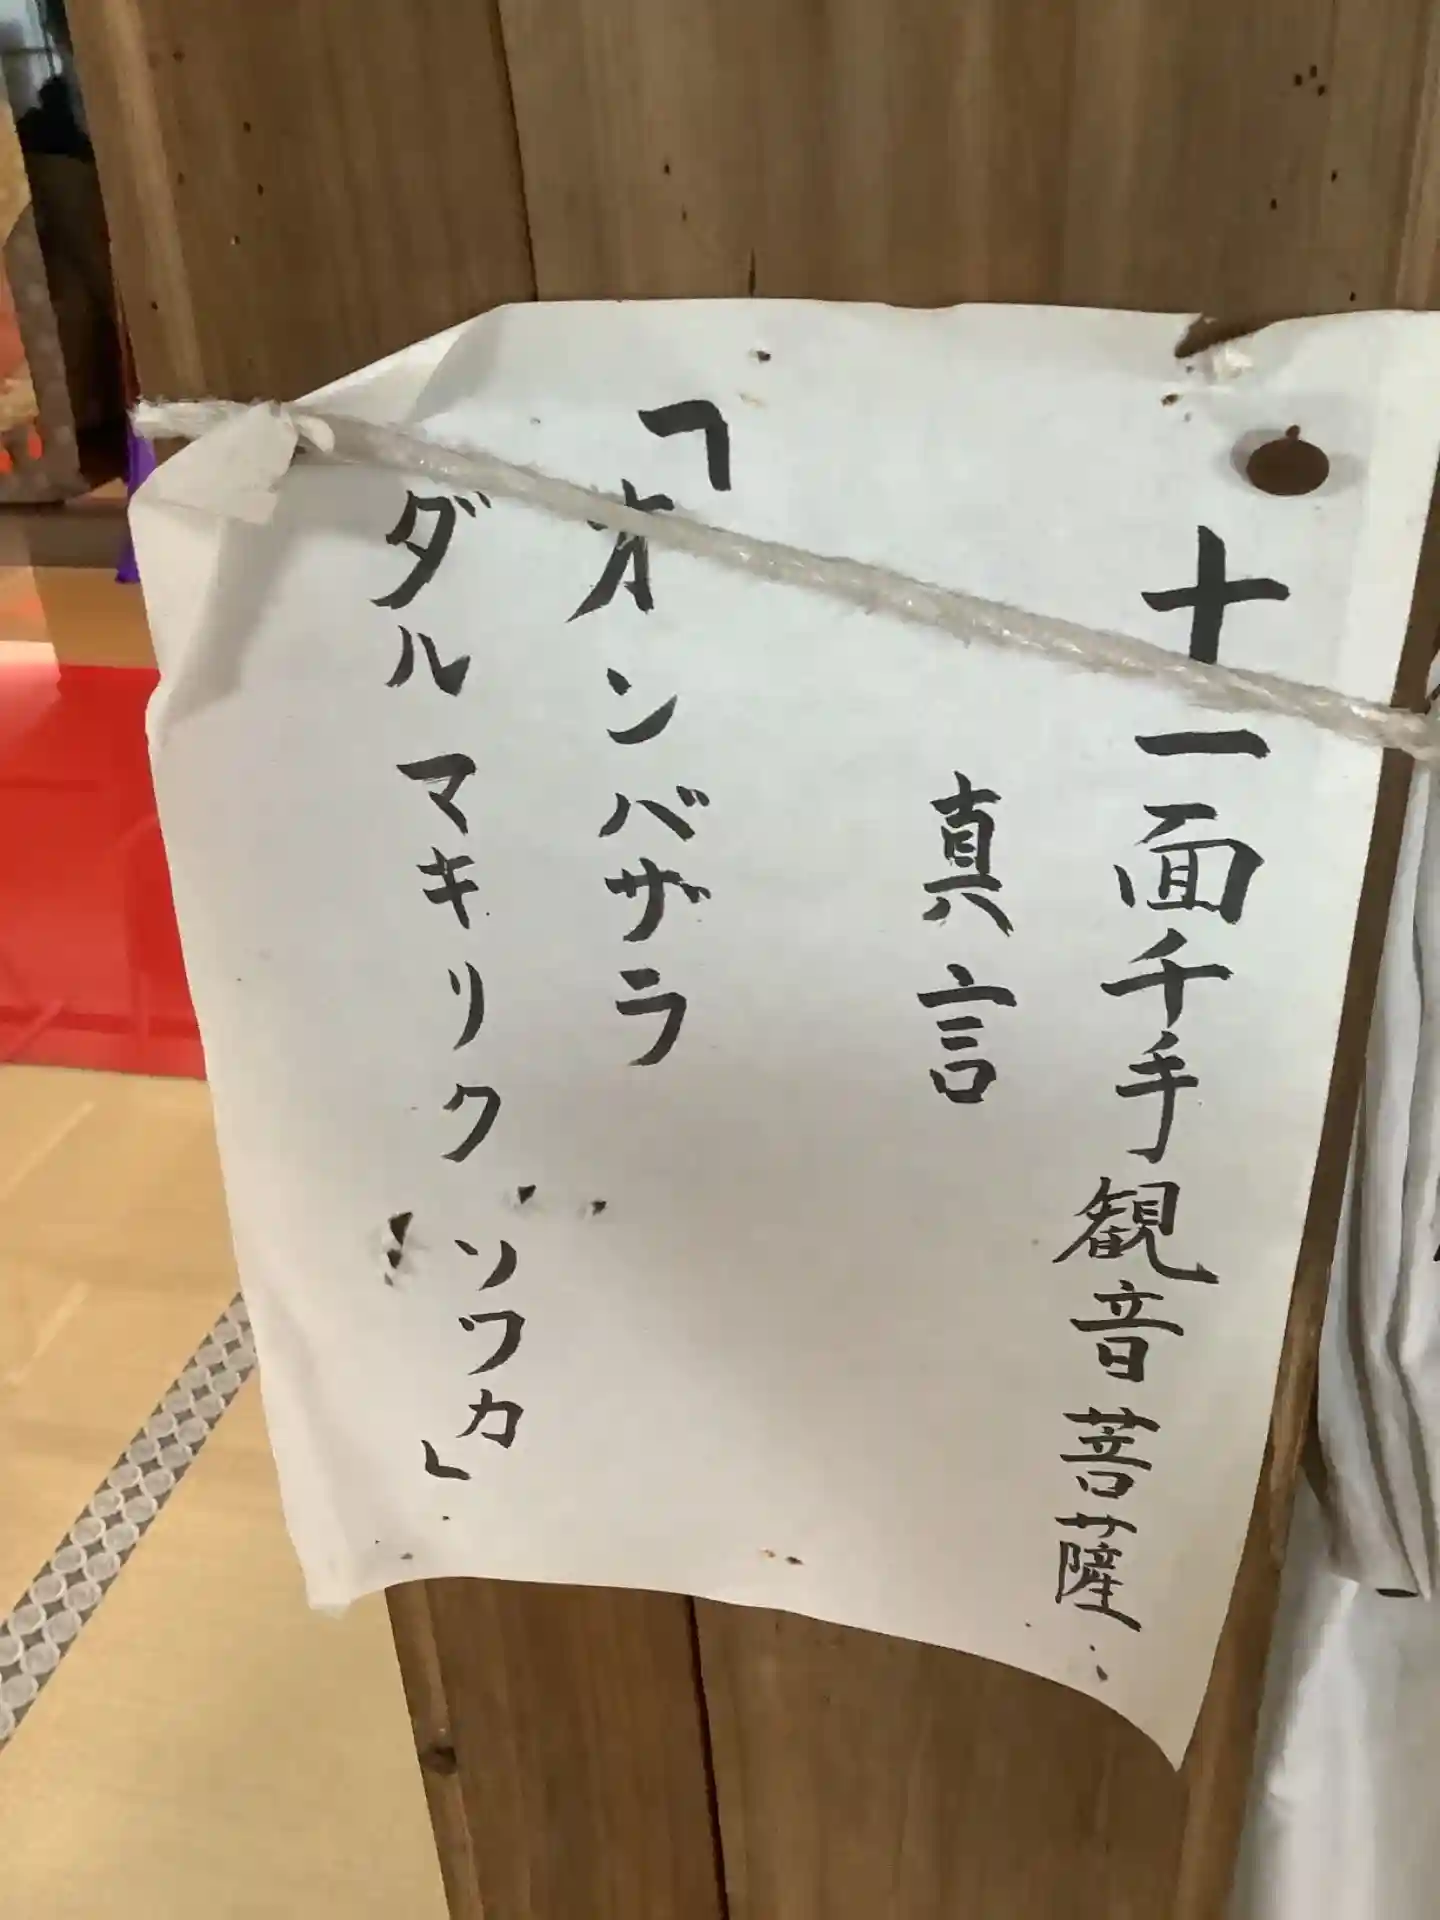 十一面千手観音菩薩
真言
「オンバザラ
ダルマキリクソワカ」